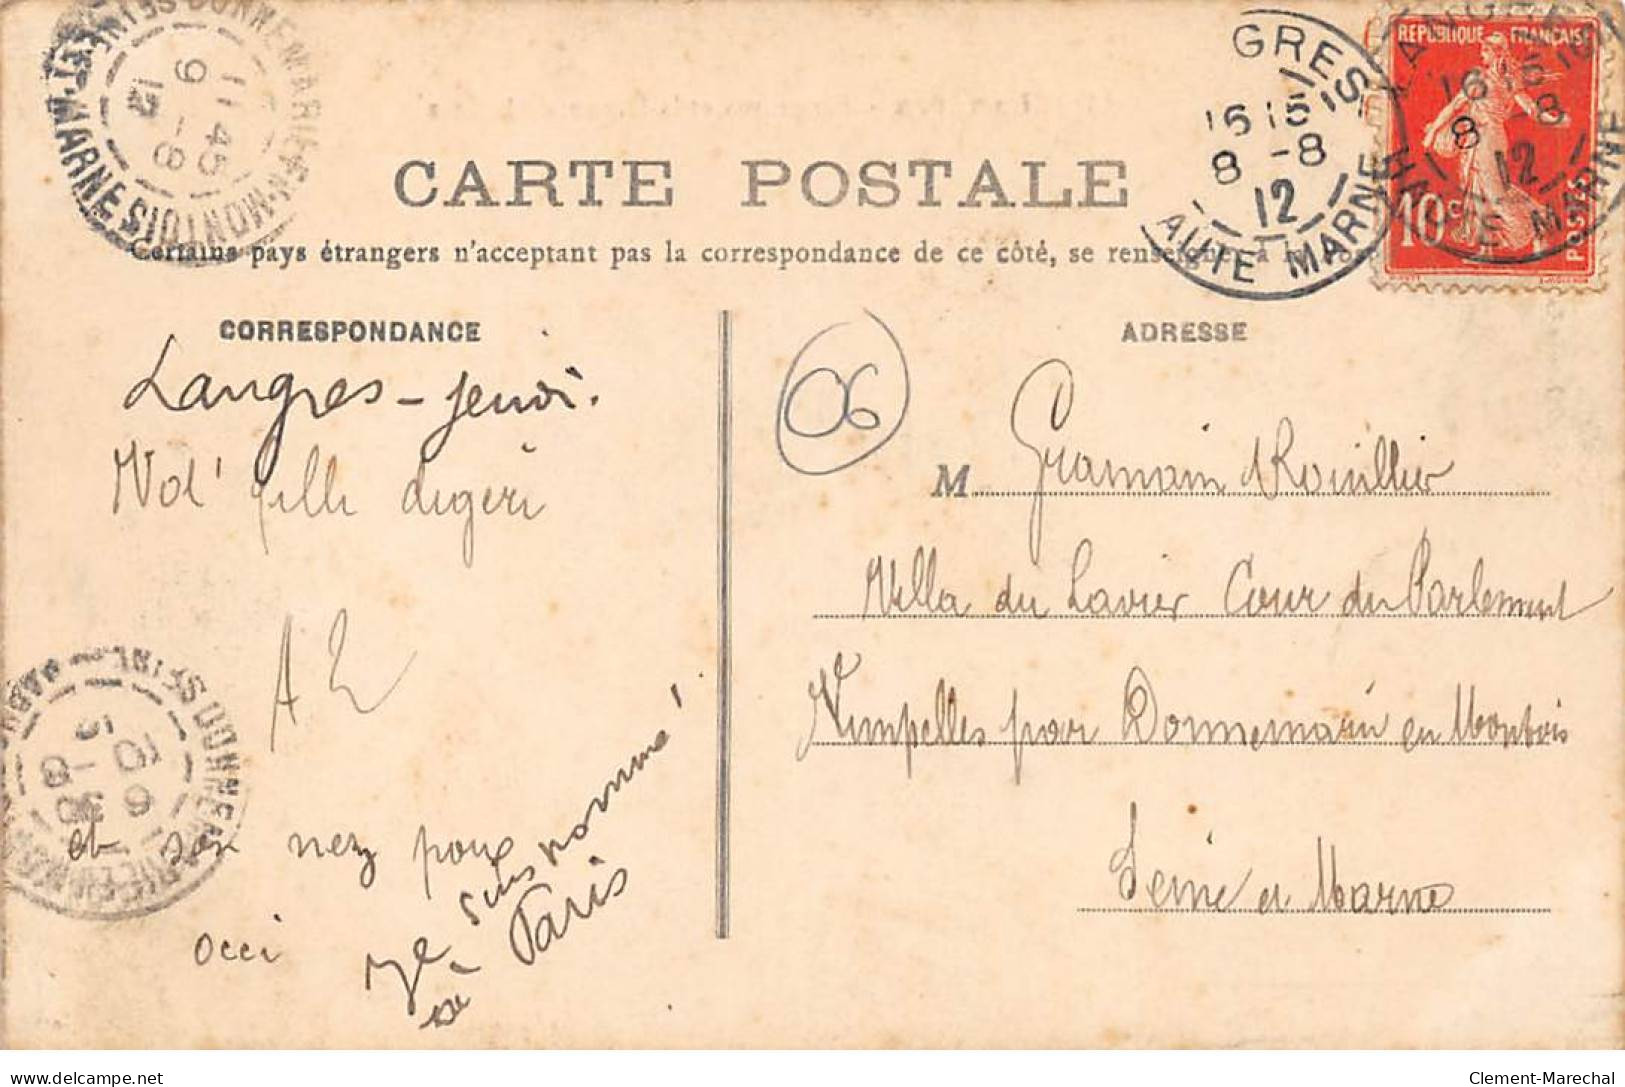 CARTE POSTALE
Certains pays étrangers n'acceptent pas la correspondance de ce côté, se renseigner à la
CORRESPONDANCE
Langres - jeudi.
digéri
A E
et son nez
occi
Je suis nommé
à Paris
06
ADRESSE
M Gramain Rouillier
Villa du Lavier Cour du Parlement
Vimpelles par Donnemarie en Montois
Seine et Marne
LANGRES
16 15
8 -8
12
HAUTE MARNE
LANGRES
16 15
8 -8
12
HAUTE MARNE
REPUBLIQUE FRANÇAISE
10c
POSTES
DONNEMARIE-EN-MONTOIS
SEINE-ET-MARNE
11 45
9 -8
12
DONNEMARIE-EN-MONTOIS
SEINE
9 -8
Clement-Marechal